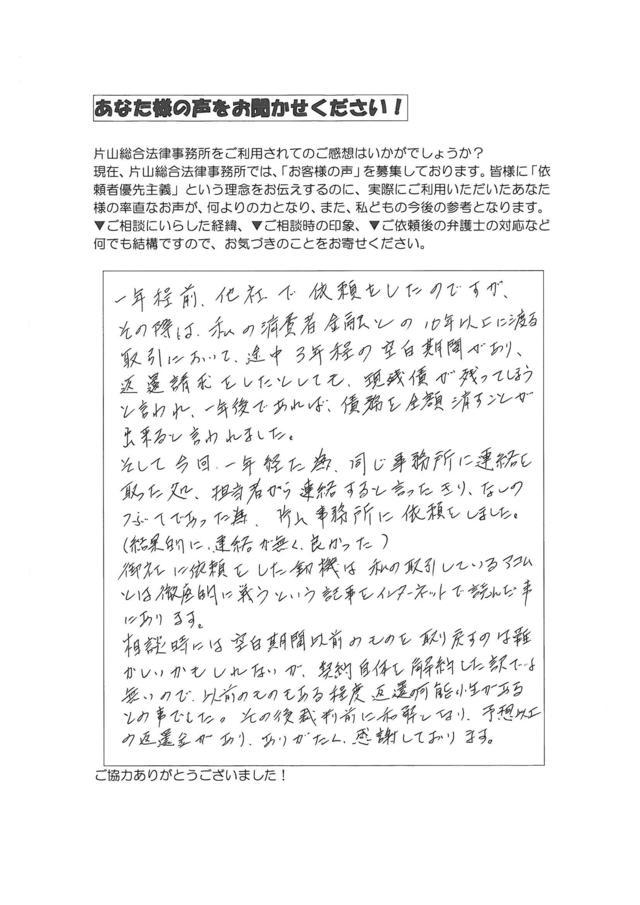 あなた様の声をお聞かせください！
片山総合法律事務所をご利用されてのご感想はいかがでしょうか？
現在、片山総合法律事務所では、「お客様の声」を募集しております。皆様に「依
頼者優先主義」という理念をお伝えするのに、実際にご利用いただいたあなた
様の率直なお声が、何よりの力となり、また、私どもの今後の参考となります。
▼ご相談にいらした経緯、▼ご相談時の印象、▼ご依頼後の弁護士の対応など
何でも結構ですので、お気づきのことをお寄せください。
一年程前、他社で依頼をしたのですが、
その際は、私の消費者金融との10年以上に渡る
取引において、途中3年程の空白期間があり、
返還請求をしたとしても、現残債が残ってしまう
と言われ、一年後であれば、債務を全額消すことが
出来ると言われました。
そして今回、一年経た為、同じ事務所に連絡を
取った処、担当者から連絡すると言ったきり、なしの
つぶてであった為、片山事務所に依頼をしました。
(結果的に、連絡が無く、良かった)
御社に依頼をした動機は私の取引しているアコム
とは徹底的に戦うという記事をインターネットで読んだ事
にあります。
相談時には空白期間以前のものを取り戻すのは難
かしいかもしれないが、契約自体を解約した訳では
無いので、以前のものもある程度返還可能性がある
との事でした。その後裁判前に和解となり、予想以上
の返還金があり、ありがたく、感謝しております。
ご協力ありがとうございました！